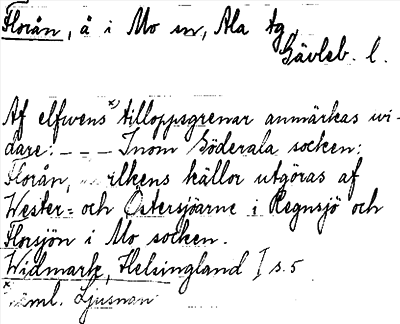 Florån, å i Mo sn, Ala tg,
Gävleb. l.
Af elfwens x) tilloppsgrenar anmärkas wi-
dare: - - - Inom Söderala socken:
Florån, hwilkens källor utgöras af
Wester= och Östersjöarne i Regnsjö och
Florsjön i Mo socken.
Widmark, Helsingland I s. 5
x näml. Ljusnan